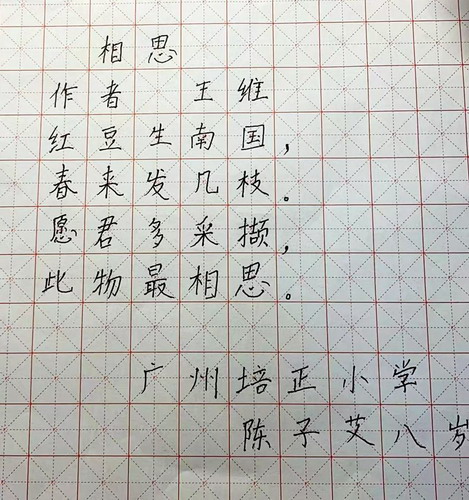 相思
作者 王维
红豆生南国，
春来发几枝。
愿君多采撷，
此物最相思。
广州培正小学
陈子艾八岁